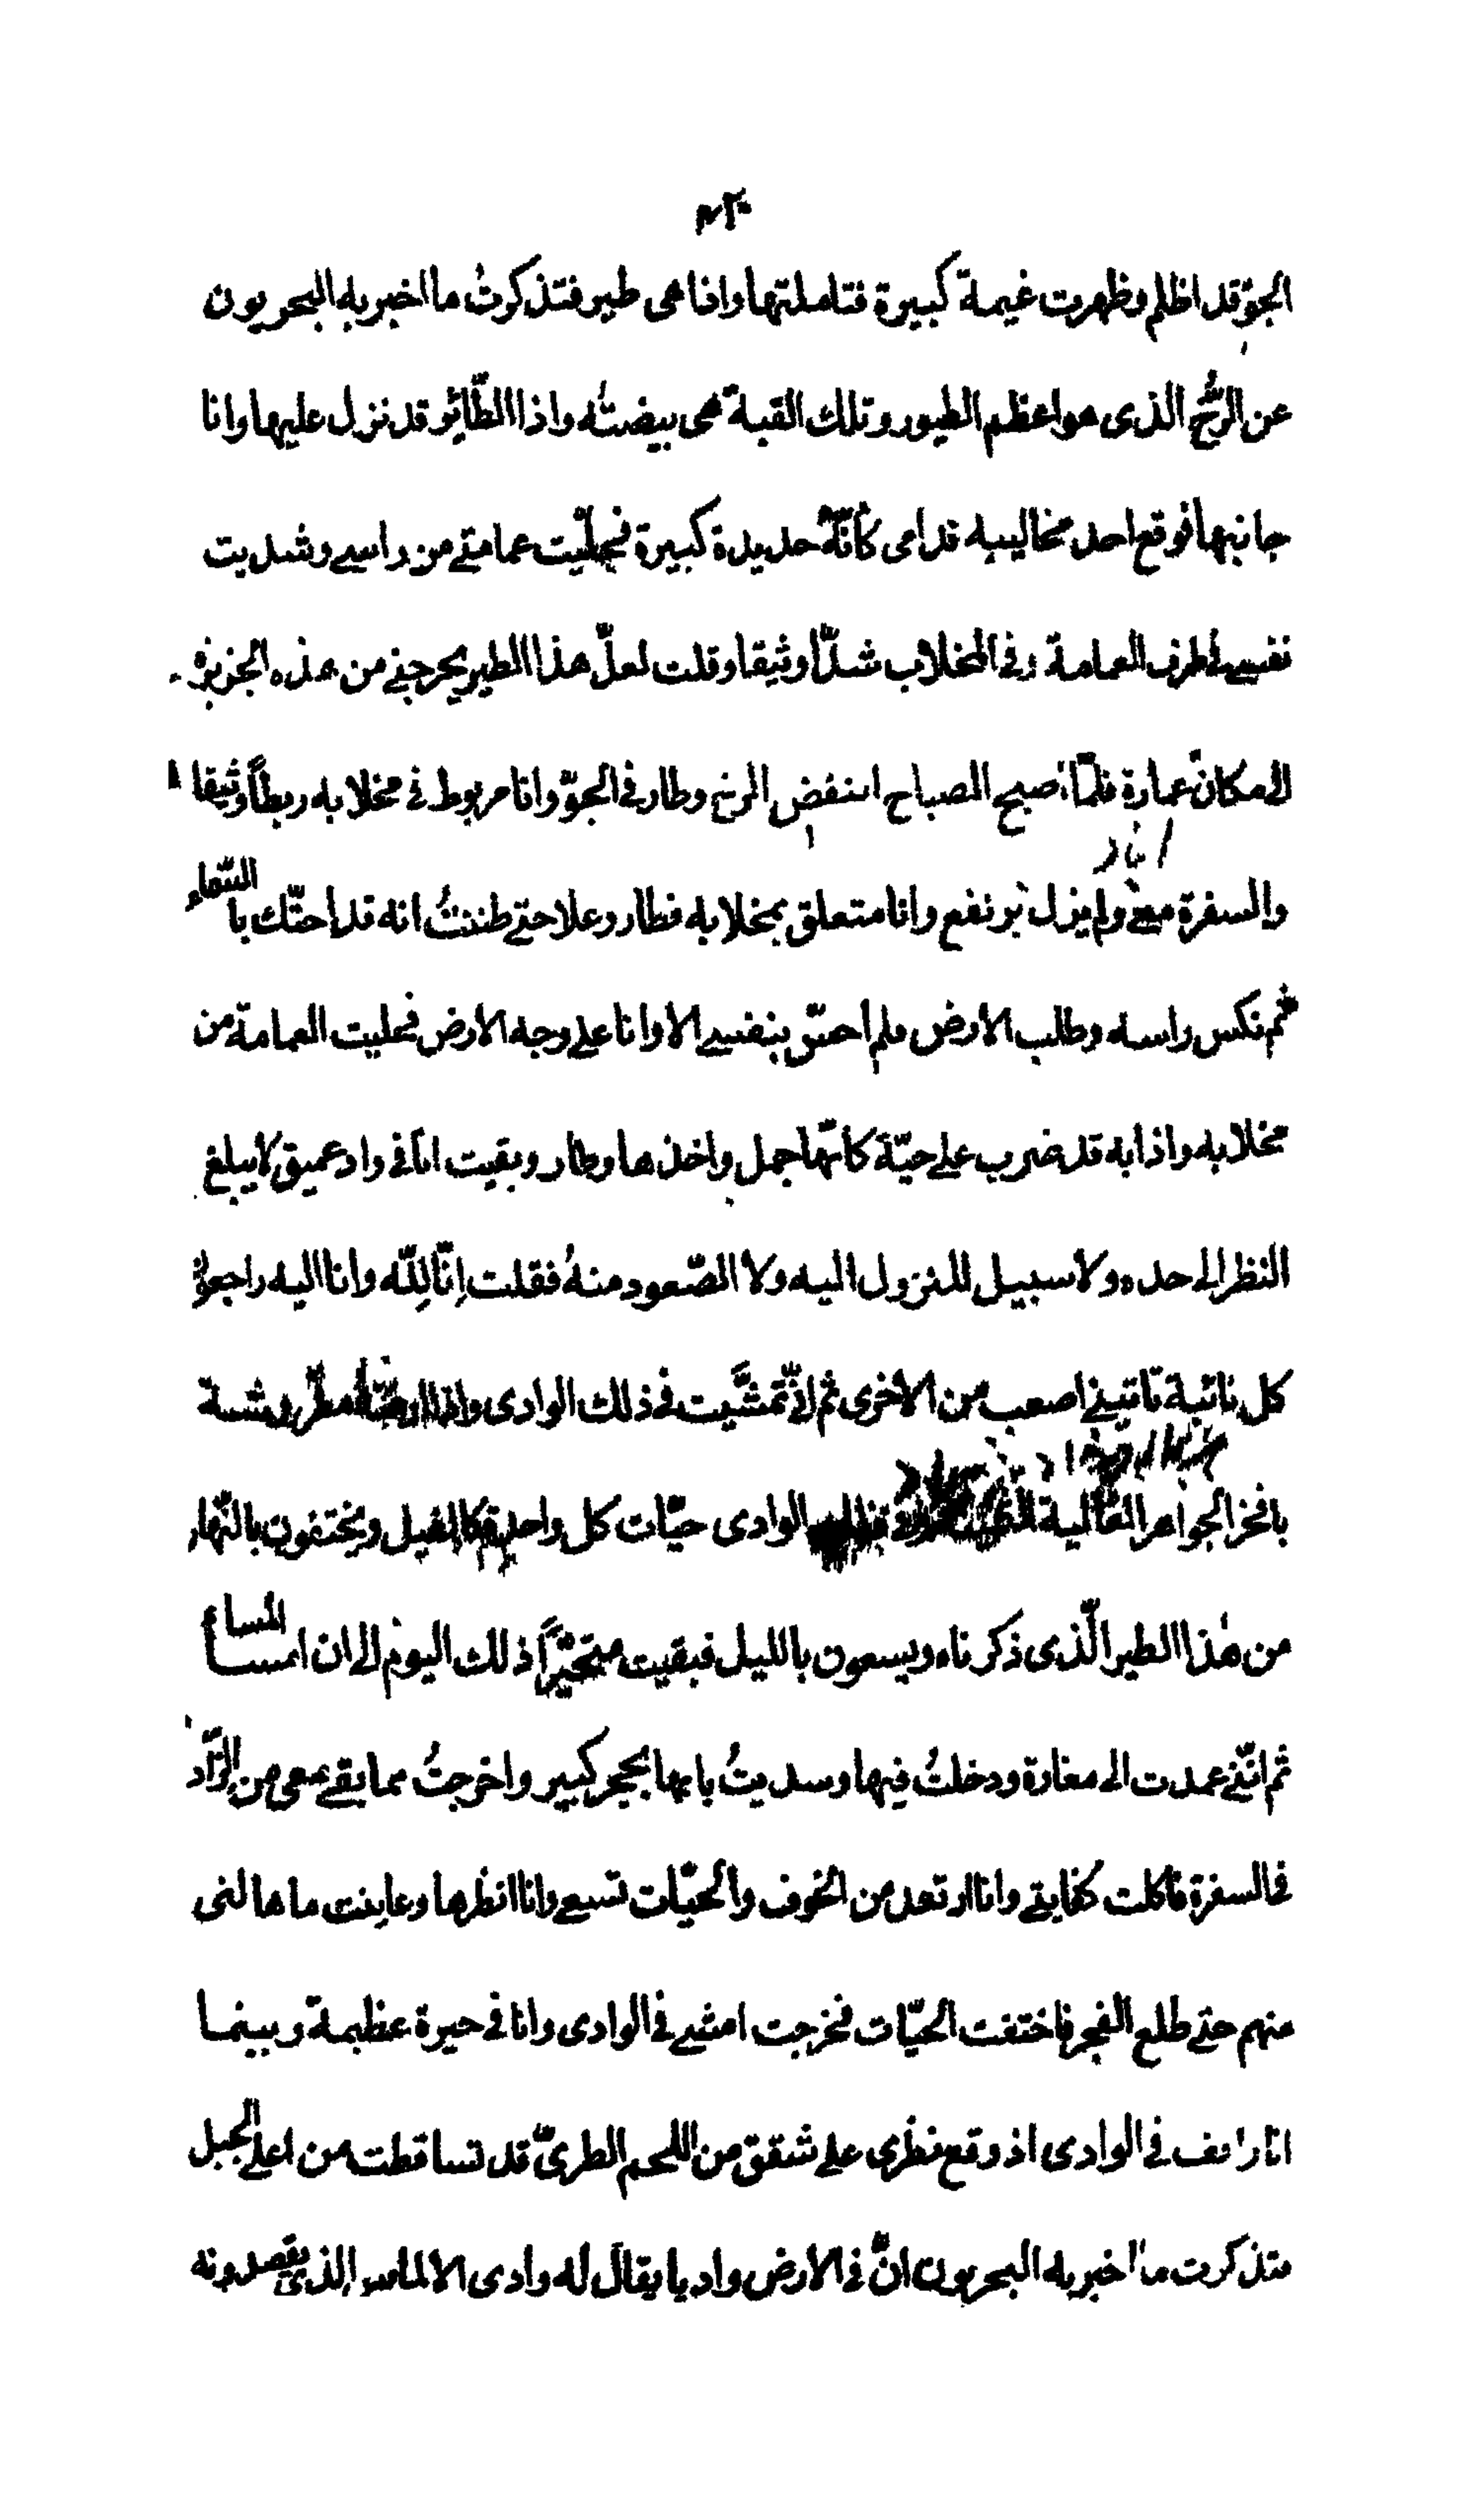 الجوّ قد اظلم وظهرت غيمة كبيرة فتاملتها واذا هى طير فتذكرتُ ما اخبر به البحريون
عن الرُّخّ الذى هو اعظم الطيور وتلك القبة هى بيضتُه واذا الطّائر قد نزل عليها وانا
جانبها فوقع احد مخاليبه قدامى كأنّهُ حديدة كبيرة فحلّيت عمامتى من راسى وشديت
نفسى فى طرف العمامة وفى المخلاب شدّاً وثيقا وقلت لعلّ هذا الطير يخرجنى من هذه الجزيرة
الى مكان عمارة فلمّا اصبح الصباح انتفض الرخ وطار فى الجوّ وانا مربوط فى مخلابه ربطاً وثيقا
والسفرة معى ولم يزل يرتفع وانا متعلق بمخلابه فطار وعلا حتى ظننتُ انه قد احتّك با السّماء
ثم نكس راسه وطلب الارض ولم احسّ بنفسى الا وانا على وجه الارض فحليت العمامة من
مخلابه واذا به قد ضرب على حيّة كانّها جمل واخذها وطار وبقيت انا فى واد عميق لا يبلغ
النظر الى حده ولا سبيل للنزول اليه ولا الصّعود منهُ فقلت إنّا لِلّه وانا اليه راجعون
كل نائبة تاتينى اصعب من الاخرى ثم انّى تمشَّيت فى ذلك الوادى واذا ارضه مفروشة
بافخر الجواهر الغالية الوادى حيّات كل واحدة كالفيل ويختفون بالنّهار
من هٰذا الطير الّذى ذكرناه ويسعون بالليل فبقيت متحيّراً ذلك اليوم الى ان امسا المسا
ثم انّنى عمدت الى مغارة ودخلتُ فيها وسديتُ بابها بحجر كبير واخرجتُ مما بقى معى من الزّاد
فى السفرة فاكلت كفايتى وانا ارتعد من الخوف والحيّات تسعى وانا انظرها وعاينت ما هالنى
منهم حتى طلع الفجر فاختفت الحيّات فخرجت امشى فى الوادى وانا فى حيرة عظيمة وبينما
انا رائف فى الوادى اذ وقع نظرى على شقق من اللحم الطرىّ قد تساقطت من اعلى الجبل
فتذكرت ما اخبر به البحريون انّ فى الارض واديا يقال له وادى الالماس الذى يقصدونه